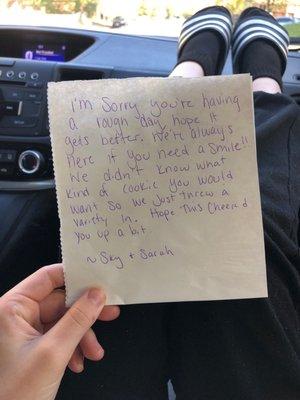 I'm Sorry you're having
a rough day, hope it
gets better. We'll always
here if you need a smile!!
We didn't know what
kind of cookie you would
want so we just threw a
variety in. Hope this cheered
you up a bit.
~ Sky + Sarah